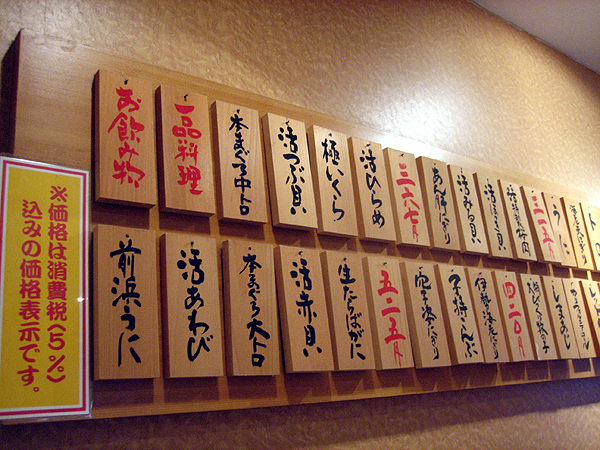 ※価格は消費税(5%)
込みの価格表示です。
お飲み物
一品料理
本まぐろ中トロ
活つぶ貝
極いくら
活ひらめ
三六七円
あん肝にぎり
活みる貝
活ほっき貝
三一五円
うに
前浜うに
活あわび
本まぐろ大トロ
活赤貝
生たらばがに
五二五円
子持こんぶ
伊勢海老にぎり
四二〇円
しまあじ